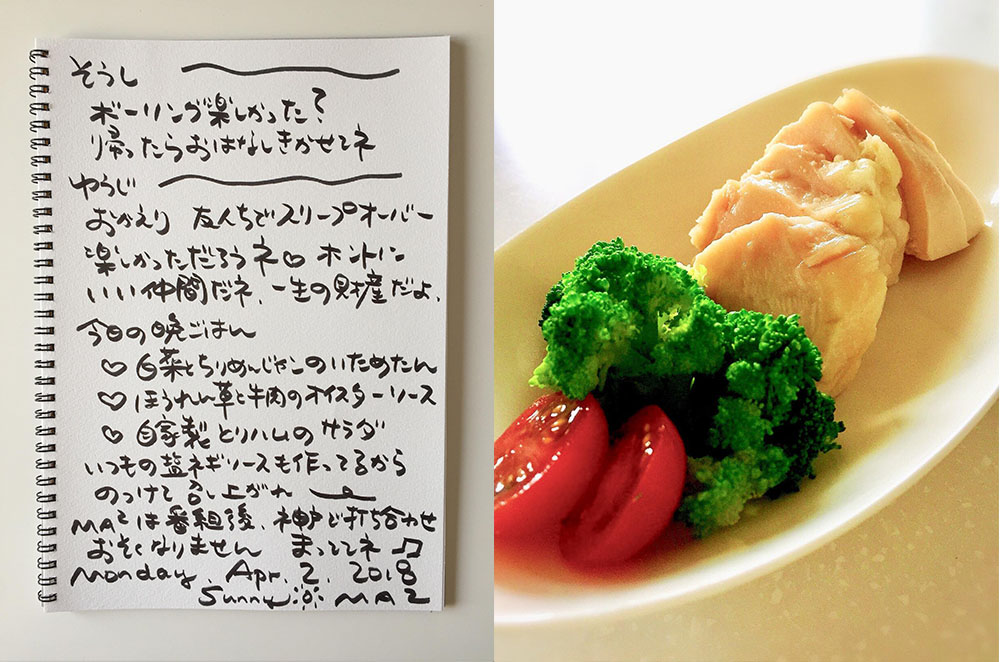 そうし
ボーリング楽しかった?
帰ったらおはなしきかせてネ
ゆうじ
おかえり 友人ちでスリープオーバー
楽しかっただろうネ♡ ホントに
いい仲間だネ、一生の財産だよ、
今日の晩ごはん
♡ 白菜とちりめんじゃこのいためたん
♡ ほうれん草と牛肉のオイスターソース
♡ 自家製とりハムのサラダ
いつもの塩ネギソースも作ってるから
のっけて召し上がれ
MAZは番組後、神戸で打ち合わせ
おそくなりません まっててネ♫
Monday, Apr. 2. 2018
Sunny MAZ